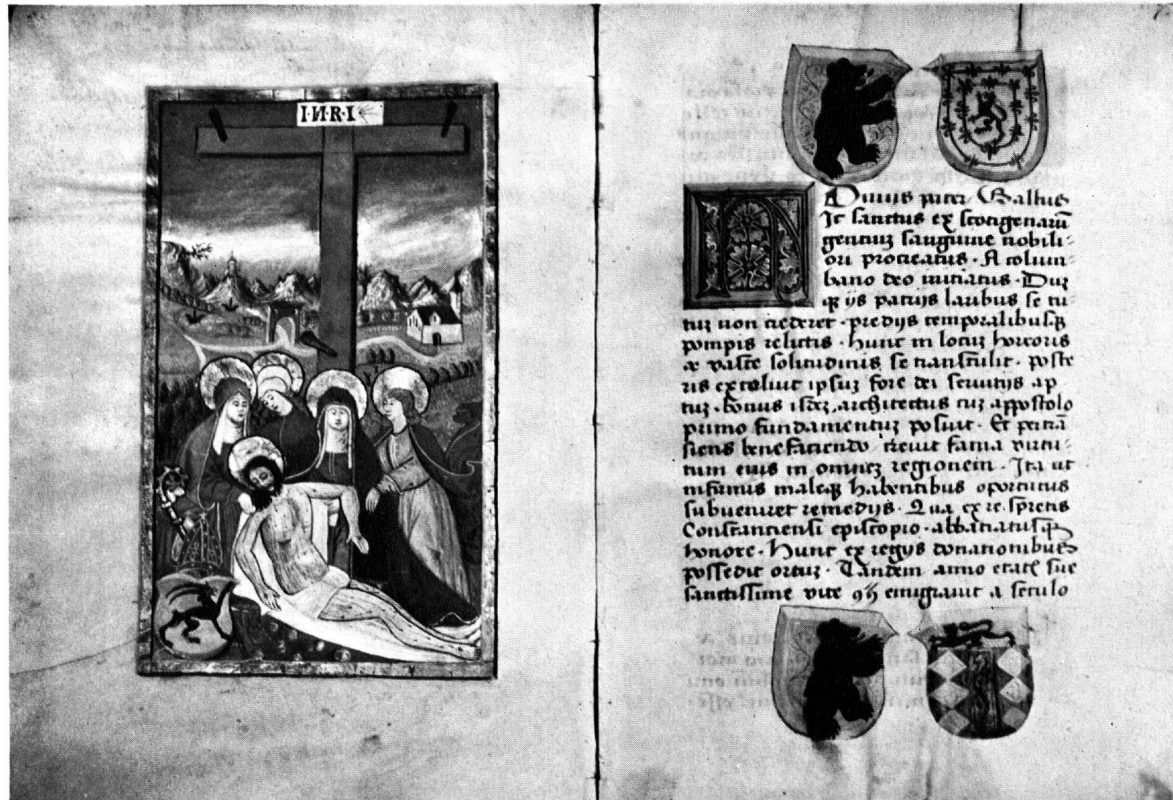 I·N·R·I
Diuus pater Gallus
it sanctus ex scotigenarū
gentiuʒ sanguine nobili-
ori procreatus · A colum
bano deo initiatus · Duʒ
qʒ ijs patrijs laribus se tu
tuʒ non crederet · predijs temporalibusqʒ
pompis relictis · hunc in locuʒ horroris
et vaste solitudinis se transtulit · poste
ris excoluit ipsuʒ fore dei seruitijs ap
tuʒ · bonus isdeʒ architectus cuʒ appostolo
primo fundamentuʒ posuit · Et pertrā
siens benefaciendo creuit fama virtu-
tum eius in omneʒ regionem · Ita ut
infirmis maleqʒ habentibus oportunis
subueniret remedijs · Qua ex re spretis
Constanciensi episcopio · abbatiatusqʒ
honore · Hunc ex regijs donationibus
possedit ortuʒ · Tandem anno etatis sue
sanctissime vite emigrauit a seculo